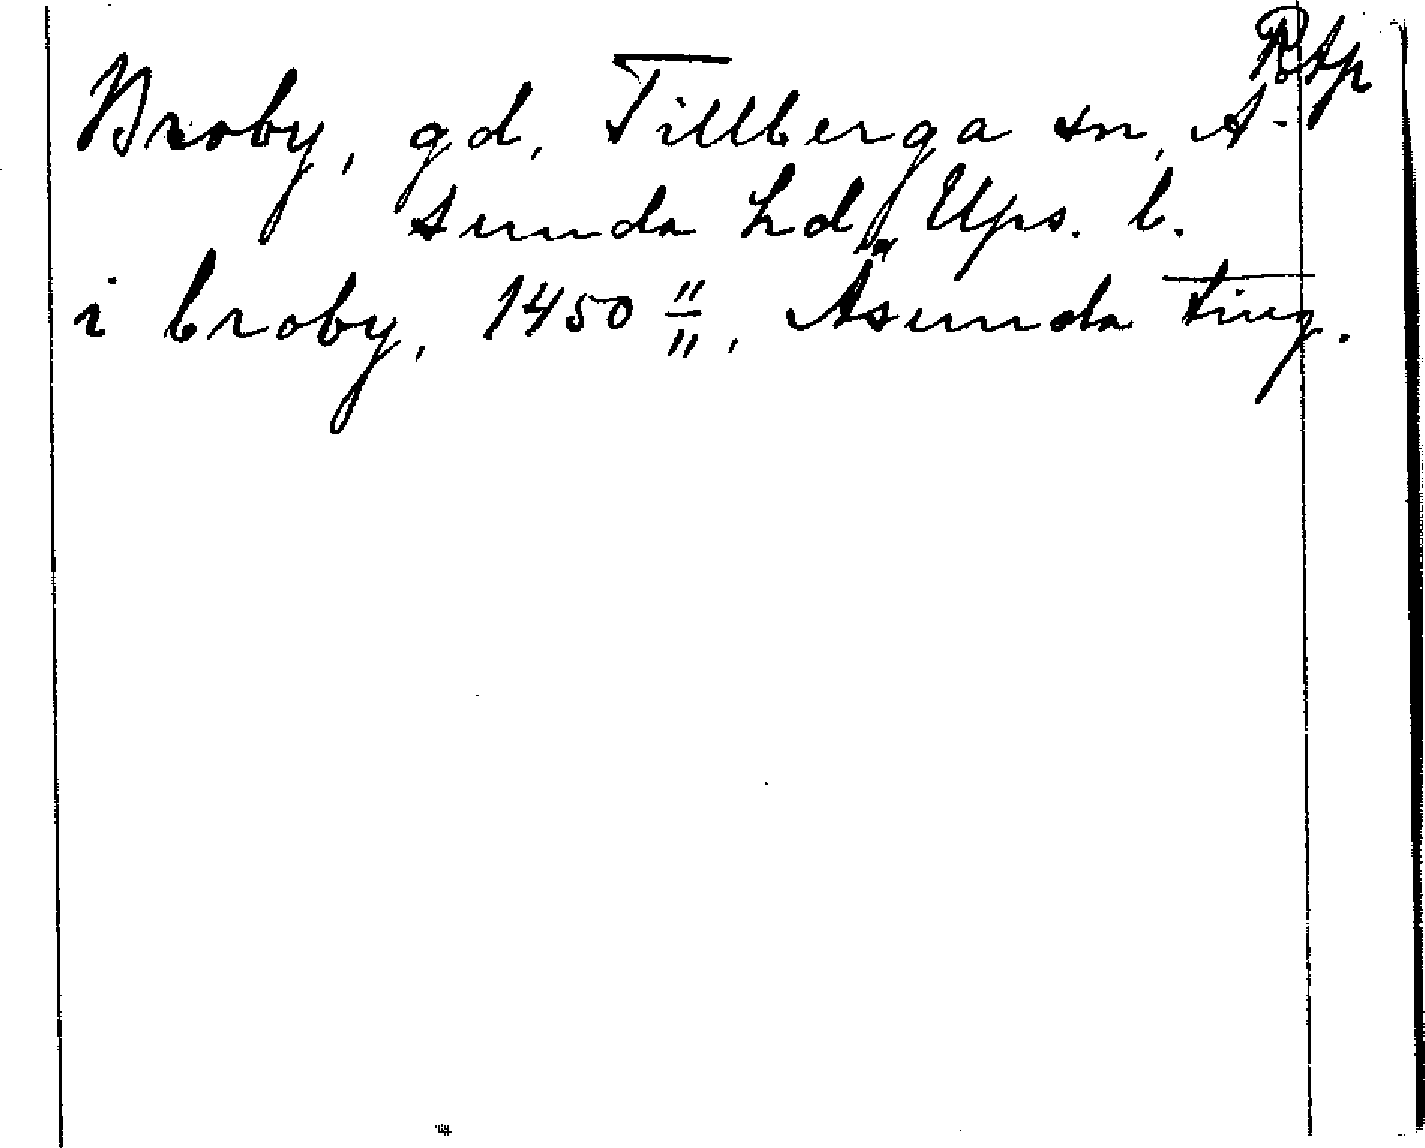 Rtp
Broby, gd, Tillberga sn, A-
sunda hd, Ups. l.
i broby, 1450 11/11, Åsunda ting.